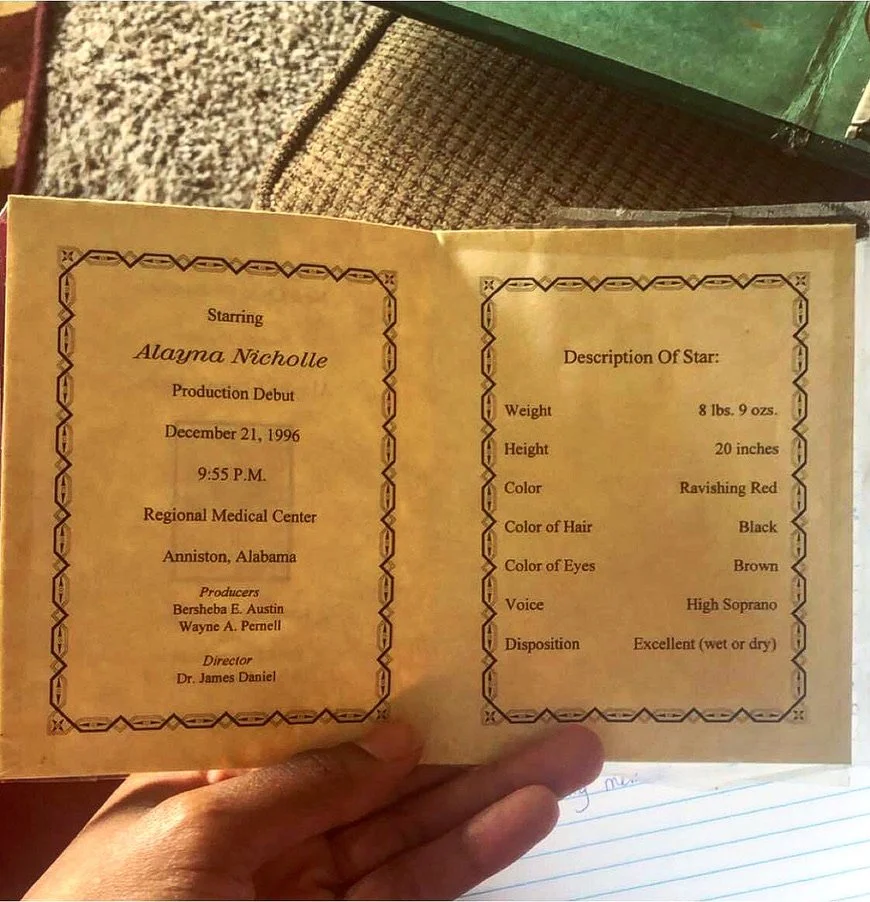 Starring
Alayna Nicholle
Production Debut
December 21, 1996
9:55 P.M.
Regional Medical Center
Anniston, Alabama
Producers
Bersheba E. Austin
Wayne A. Pernell
Director
Dr. James Daniel
Description Of Star:
Weight 8 lbs. 9 ozs.
Height 20 inches
Color Ravishing Red
Color of Hair Black
Color of Eyes Brown
Voice High Soprano
Disposition Excellent (wet or dry)